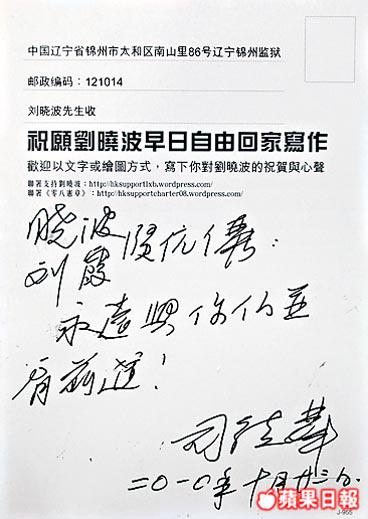 中国辽宁省锦州市太和区南山里86号辽宁锦州监狱
邮政编码：121014
刘晓波先生收
祝願劉曉波早日自由回家寫作
歡迎以文字或繪圖方式，寫下你對劉曉波的祝賀與心聲
聯署支持劉曉波：http://hksupportlxb.wordpress.com/
聯署《零八憲章》：http://hksupportcharter08.wordpress.com/
晓波
刘霞 贤伉儷：
永遠與你们並
肩前進！
司徒華
二〇一〇年十月廿三日
蘋果日報
J-955